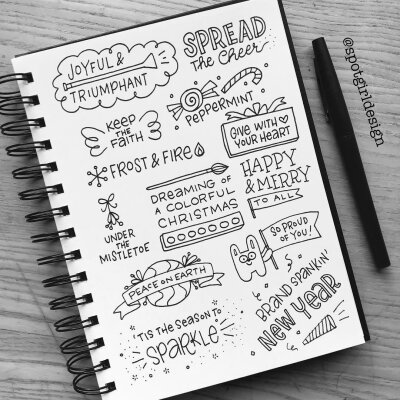 JOYFUL &
TRIUMPHANT
SPREAD
the Cheer
KEEP
THE
FAITH
PEPPERMINT
GIVE WITH
YOUR HEART
FROST & FIRE
DREAMING OF
A COLORFUL
CHRISTMAS
HAPPY
& MERRY
TO ALL
UNDER
THE
MISTLETOE
SO PROUD
OF YOU!
PEACE ON EARTH
BRAND SPANKIN'
NEW YEAR
'TIS THE SEASON TO
SPARKLE
@spotgirldesign